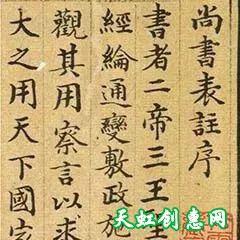 尚書表註序
書者二帝三王
經綸通變敷政施
觀其用察言以求
大之用天下國
天虹创意网